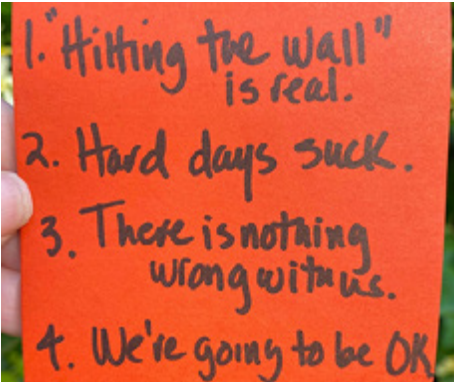 1. "Hitting the Wall"
is real.
2. Hard days suck.
3. There is nothing
wrong with us.
4. We're going to be OK.